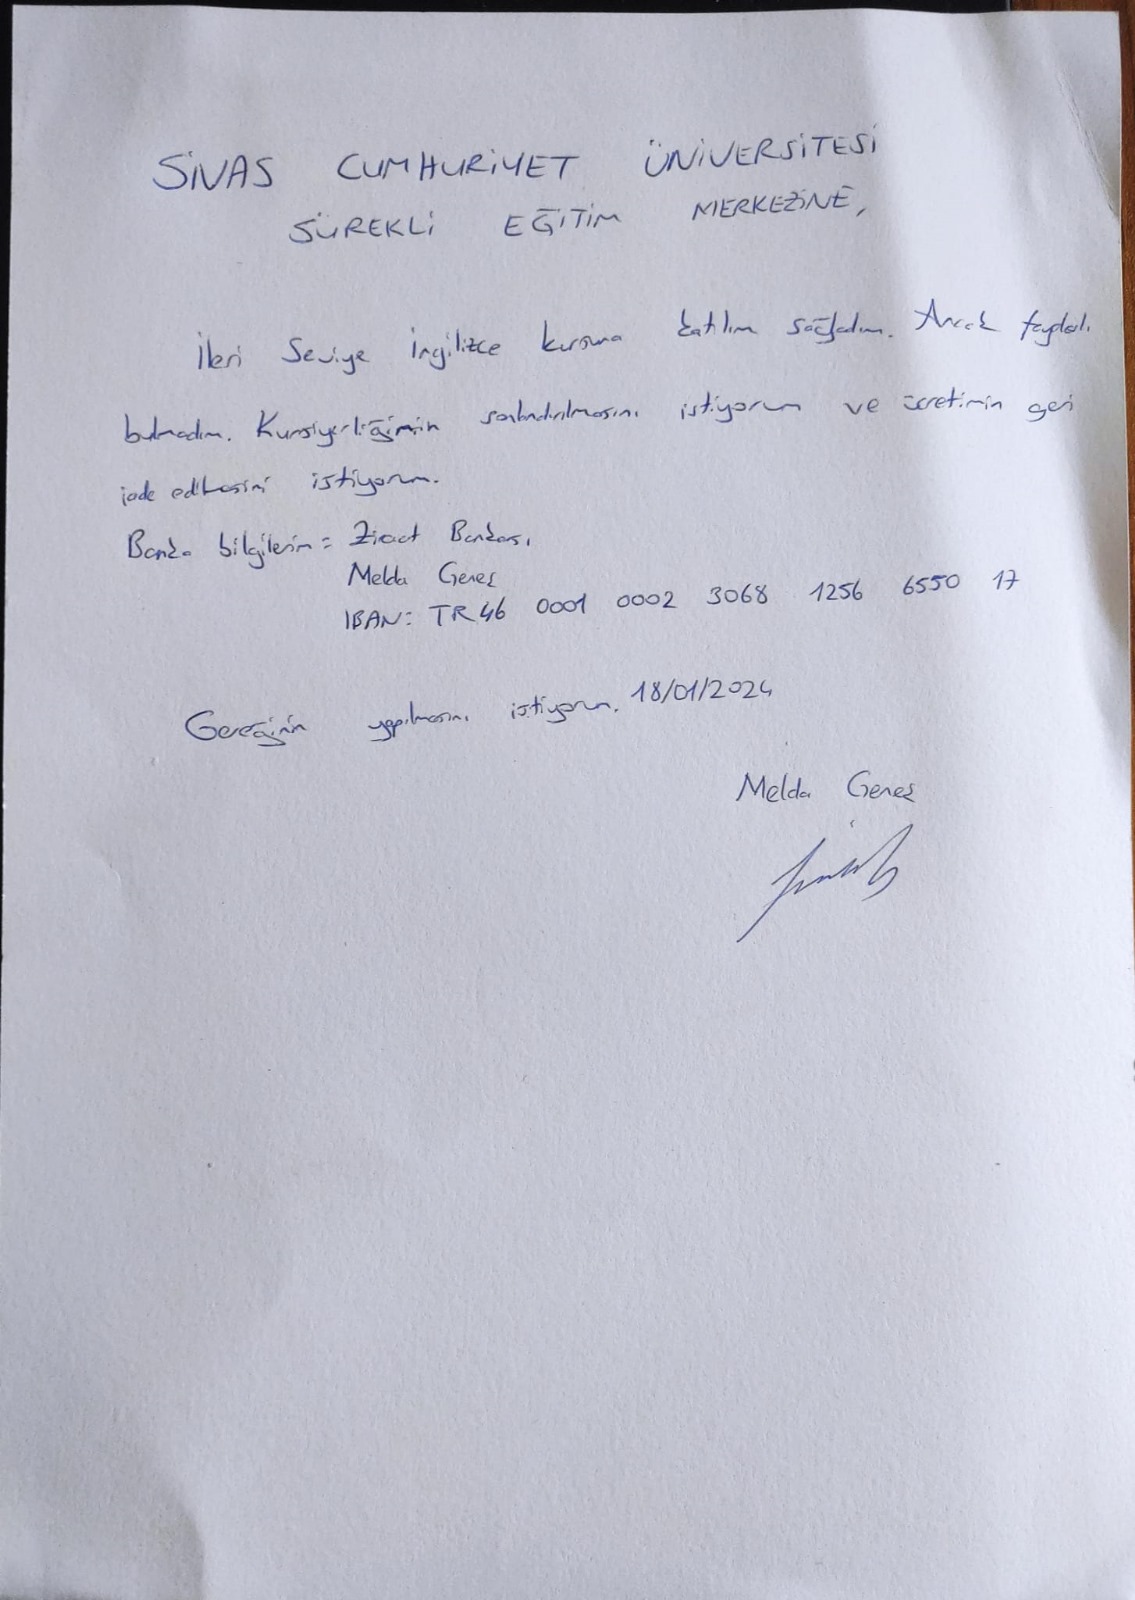 SİVAS CUMHURİYET ÜNİVERSİTESİ
SÜREKLİ EĞİTİM MERKEZİNE,
İleri Seviye İngilizce kursuna katılım sağladım. Ancak faydalı
bulmadım. Kursiyerliğimin sonlandırılmasını istiyorum ve ücretimin geri
iade edilmesini istiyorum.
Banka bilgilerim = Ziraat Bankası
Melda Gereş
IBAN: TR46 0001 0002 3068 1256 6550 17
Gereğinin yapılmasını istiyorum. 18/01/2024
Melda Gereş